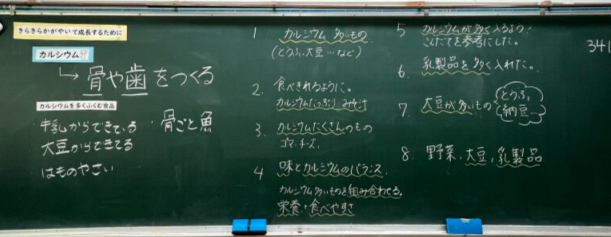 きらきらかがやいて成長するために
カルシウム
→骨や歯をつくる
カルシウムを多くふくむ食品
牛乳からできている ・骨ごと魚
大豆からできてる
はものやさい
1 カルシウム多いもの
(とうふ、大豆…など)
2. 食べきれるように。
カルシウムたっぷりみそ汁
3. カルシウムたくさんのもの
ゴマ・チーズ、
4 味とカルシウムのバランス、
カルシウム多いものを組み合わせる。
栄養・食べやすさ
5 カルシウムが多く入るよう
こんだてを参考にした。
6. 乳製品を多く入れた。
7 大豆が多いもの
とうふ、
納豆…
8. 野菜、大豆、乳製品
341